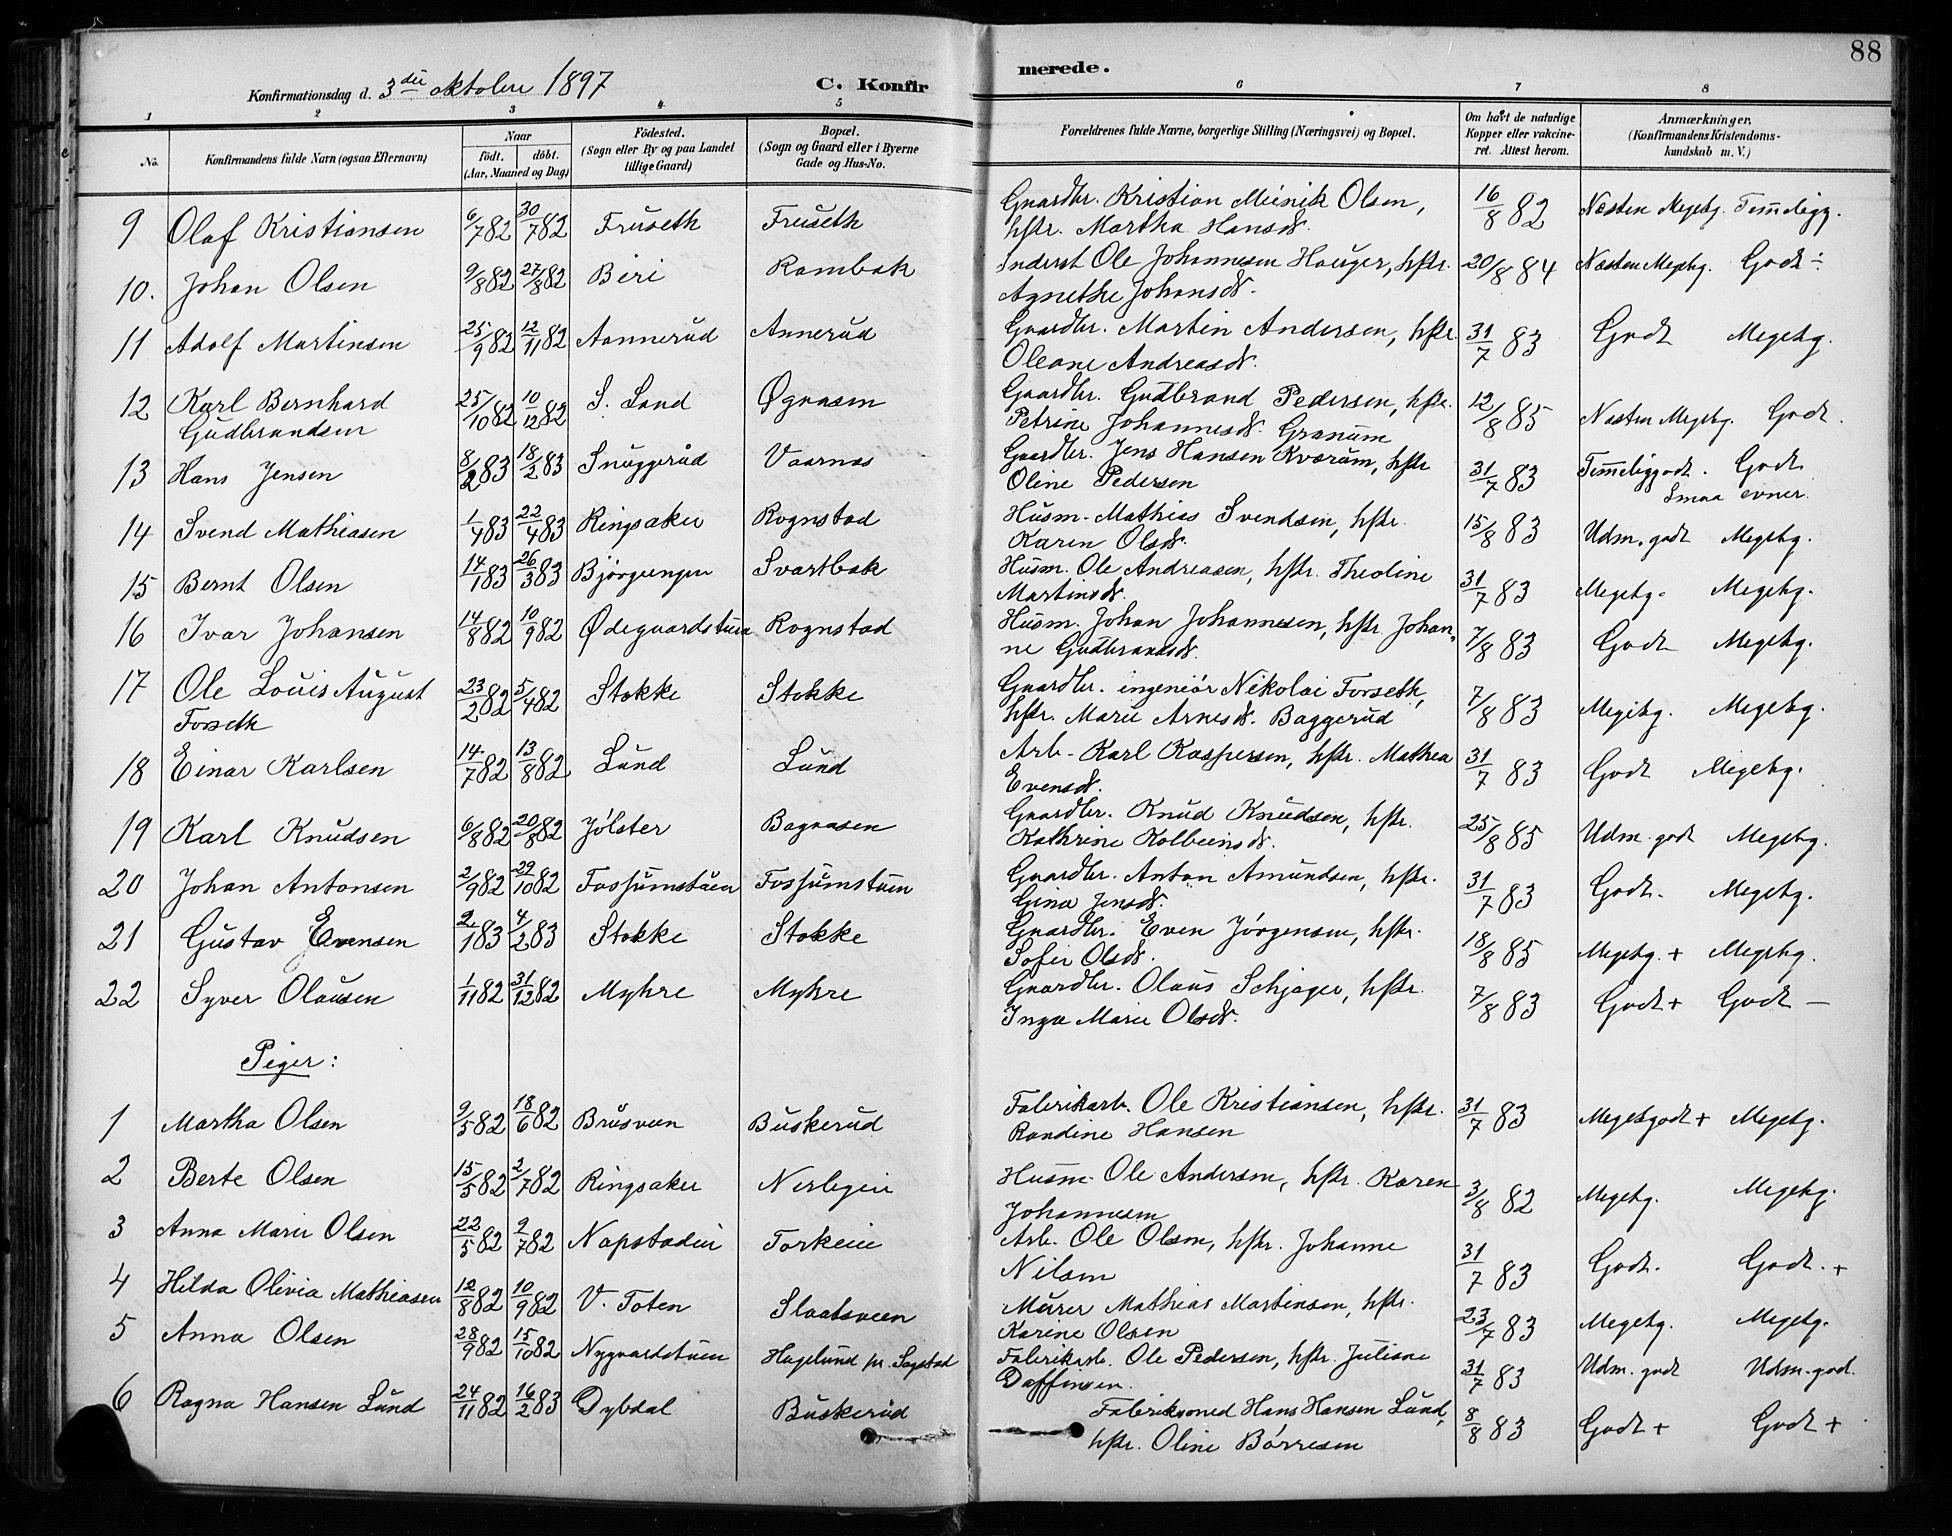 88
Konfirmationsdag d. 3die oktober 1897 C. Konfirmerede.
1 2 3 4 5 6 7 8
No. Konfirmandens fulde Navn (ogsaa Efternavn) Naar født. døbt. (Aar, Maaned og Dag) Fødested. (Sogn eller By og paa Landet tillige Gaard) Bopæl. (Sogn og Gaard eller i Byerne Gade og Hus-No. Forældrenes fulde Navne, borgerlige Stilling (Næringsvei) og Bopæl. Om havt de naturlige Kopper eller vaccineret. Attest herom. Anmærkninger. (Konfirmandens Kristendomskundskab m. V.)
9 Olaf Kristiansen 6/7 82 30/7 82 Fruseth Fruseth Gaardbr. Kristian Meinik Olsen, 16/8 82 Næsten Megetg. Temmeligg.
hstr. Martha Hansdr.
10. Johan Olsen 9/8 82 27/8 82 Biri Rambæk Inderst Ole Johannesen Hauger, hstr. 20/8 84 Næsten Megetg. Godt ÷
Agnethe Johansdr.
11 Adolf Martinsen 25/9 82 12/11 82 Aannerud Annerud Gaardbr. Martin Andersen, hstr. 31/7 83 Godt Megetg.
Oleane Andreasdr.
12 Karl Bernhard 25/10 82 10/12 82 S. Land Øgaasen Gaardbr. Gudbrand Pedersen, hstr. 12/8 85 Næsten Megetg. Godt.
Gudbrandsen Petrine Johannesdr. Granum
13 Hans Jensen 8/2 83 18/2 83 Snuggerud Vaarnæs Gaardbr. Jens Hansen Kværum, hstr 31/7 83 Temmeliggodt. Godt
Oline Pedersen Smaa evner.
14 Svend Mathiasen 1/4 83 22/4 83 Ringsaker Rognstad Husm. Mathias Svendsen, hstr. 15/8 83 Udm. godt Megetg.
Karen Olsdr.
15 Bernt Olsen 14/1 83 26/3 83 Bjørgeengen Svartbæk Husm. Ole Andreasen, hstr. Theoline 31/7 83 Megetg. Megetg.
Martinsdr.
16 Ivar Johansen 14/8 82 10/9 82 Ødegaardstuen Rognstad Husm. Johan Johannesen, hstr. Johan- 7/8 83 Godt Megetg.
ne Gudbrandsdr.
17 Ole Louis August 23/2 82 5/4 82 Stokke Stokke Gaardbr. ingeniør Nikolai Forseth, 7/8 83 Megetg. Megetg.
Forseth hstr. Marie Arnesdr. Baggerud
18 Einar Karlsen 14/7 82 13/8 82 Lund Lund Arb. Karl Kaspersen, hstr. Mathea 31/7 83 Godt Megetg.
Evensdr.
19 Karl Knudsen 6/8 82 20/8 82 Jølster Bagaasen Gaardbr. Knud Knudsen, hstr. 25/8 85 Udm. godt Megetg.
Kathrine Kolbeinsdr.
20 Johan Antonsen 2/9 82 29/10 82 Fossumstuen Fossumstuen Gaardbr. Anton Amundsen, hstr. 31/7 83 Godt. Megetg.
Gina Jensdr.
21 Gustav Evensen 2/1 83 4/2 83 Stokke Stokke Gaardbr. Even Jørgensen, hstr. 18/8 85 Megetg. + Megetg.
Sofie Olsdr.
22 Syver Olausen 1/11 82 31/12 82 Myhre Myhre Gaardbr. Olaus Schjager, hstr. 7/8 83 Godt + Godt —
Inga Marie Olsdr.
Piger:
1 Martha Olsen 9/5 82 18/6 82 Brusveen Buskerud Fabrikarb. Ole Kristiansen, hstr. 31/7 83 Megetgodt + Megetg.
Randine Hansen
2 Berte Olsen 15/5 82 2/7 82 Ringsaker Nerlegen Husm. Ole Andersen, hstr. Karen 3/8 82 Megetg. Megetg.
Johannesen
3 Anna Marie Olsen 22/5 82 9/7 82 Napstadei Torkeiie Arb. Ole Olsen, hstr. Johanne 31/7 83 Godt. Godt. +
Nilsen
4 Hilda Olivia Mathiasen 12/8 82 10/9 82 V. Toten Slaatsveen Murer Mathias Martinsen, hstr. 23/7 83 Megetg. Megetg.
Karine Olsen
5 Anna Olsen 28/9 82 15/10 82 Nygaardstuen Hagelund pr. Sagstad Fabrikarb. Ole Pedersen, hstr. Juliane 31/7 83 Udm. godt Udm. god.
Daffinsen.
6 Ragna Hansen Lund 24/11 82 16/2 83 Dybdal Buskerud Fabriksmed Hans Hansen Lund, 8/8 83 Godt + Godt +
hstr. Oline Børresen